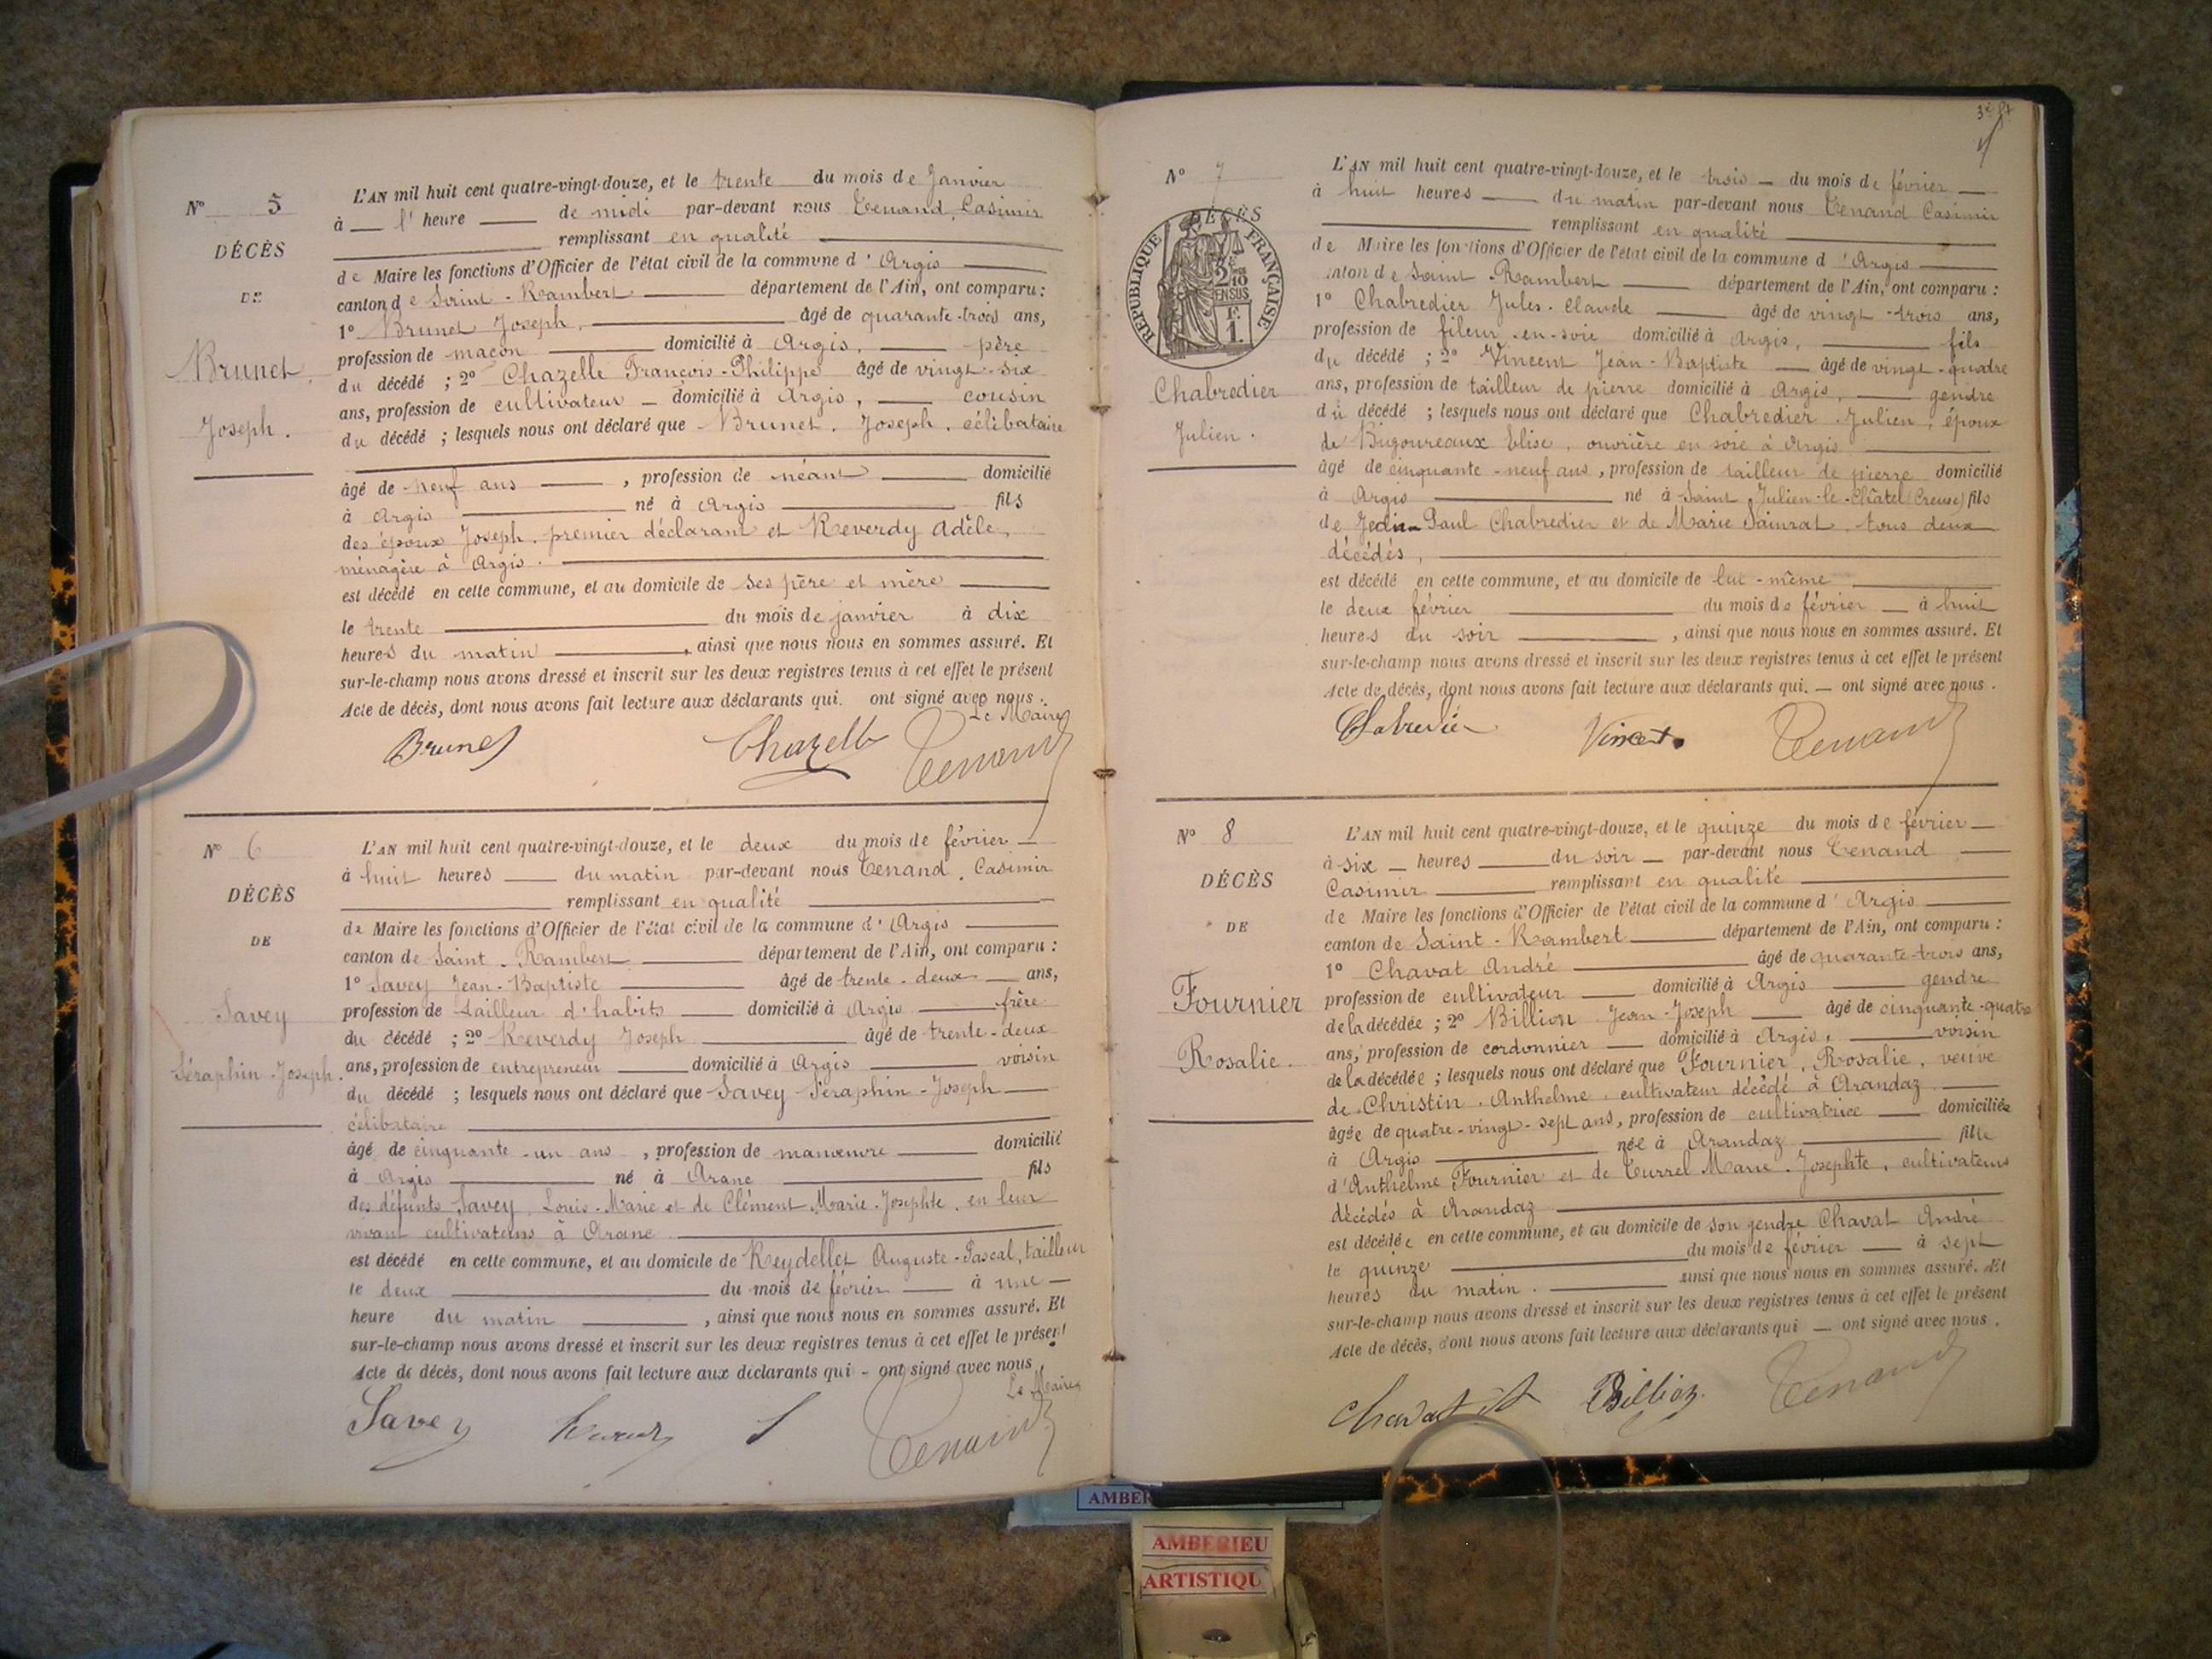 N° 5
DÉCÈS
DE
Brunet
Joseph.
L'AN mil huit cent quatre-vingt-douze, et le trente du mois de Janvier
à l'heure de midi par-devant nous Tenand, Casimir
remplissant en qualité
de Maire les fonctions d'Officier de l'état civil de la commune d'Argis
canton de Saint-Rambert département de l'Ain, ont comparu :
1° Brunet Joseph, âgé de quarante-trois ans,
profession de maçon domicilié à Argis, père
du décédé ; 2° Chazelle François-Philippe âgé de vingt-six
ans, profession de cultivateur domicilié à Argis, cousin
du décédé ; lesquels nous ont déclaré que Brunet. Joseph. célibataire
âgé de neuf ans, profession de néant domicilié
à Argis né à Argis fils
des époux Joseph, premier déclarant et Reverdy Adèle,
ménagère à Argis.
est décédé en cette commune, et au domicile de ses père et mère
le trente du mois de janvier à dix
heures du matin, ainsi que nous nous en sommes assuré. Et
sur-le-champ nous avons dressé et inscrit sur les deux registres tenus à cet effet le présent
Acte de décès, dont nous avons fait lecture aux déclarants qui. ont signé avec nous.
Le Maire
Brunet Chazelle Tenand
N° 6
DÉCÈS
DE
Savey
Séraphin-Joseph.
L'AN mil huit cent quatre-vingt-douze, et le deux du mois de février
à huit heures du matin par-devant nous Tenand, Casimir
remplissant en qualité
de Maire les fonctions d'Officier de l'état civil de la commune d'Argis
canton de Saint-Rambert département de l'Ain, ont comparu :
1° Savey Jean-Baptiste âgé de trente-deux ans,
profession de tailleur d'habits domicilié à Argis frère
du décédé ; 2° Reverdy Joseph âgé de trente-deux
ans, profession de entrepreneur domicilié à Argis voisin
du décédé ; lesquels nous ont déclaré que Savey Séraphin-Joseph
célibataire
âgé de cinquante-un ans, profession de manœuvre domicilié
à Argis né à Aranc fils
des défunts Savey, Louis-Marie et de Clément Marie-Josephte, en leur
vivant cultivateurs à Aranc
est décédé en cette commune, et au domicile de Reydellet Auguste-Pascal, tailleur
le deux du mois de février à une
heure du matin, ainsi que nous nous en sommes assuré. Et
sur-le-champ nous avons dressé et inscrit sur les deux registres tenus à cet effet le présent
Acte de décès, dont nous avons fait lecture aux déclarants qui - ont signé avec nous,
Le Maire
Savey Tenand
N° 7
DÉCÈS
RÉPUBLIQUE FRANÇAISE
2/10
EN SUS
1 F.
Chabredier
Julien.
L'AN mil huit cent quatre-vingt-douze, et le trois du mois de février
à huit heures du matin par-devant nous Tenand Casimir
remplissant en qualité
de Maire les fonctions d'Officier de l'état civil de la commune d'Argis
canton de Saint-Rambert département de l'Ain, ont comparu :
1° Chabredier Jules-Claude âgé de vingt-trois ans,
profession de fileur-en-soie domicilié à Argis, fils
du décédé ; 2° Vincent Jean-Baptiste âgé de vingt-quatre
ans, profession de tailleur de pierre domicilié à Argis, gendre
du décédé ; lesquels nous ont déclaré que Chabredier Julien, époux
de Bigoureaux Elise, ouvrière en soie à Argis
âgé de cinquante-neuf ans, profession de tailleur de pierre domicilié
à Argis né à Saint Julien-le-Châtel (Creuse) fils
de Jean-Paul Chabredier et de Marie Sainrat, tous deux
décédés,
est décédé en cette commune, et au domicile de lui-même
le deux février du mois de février à huit
heures du soir, ainsi que nous nous en sommes assuré. Et
sur-le-champ nous avons dressé et inscrit sur les deux registres tenus à cet effet le présent
Acte de décès, dont nous avons fait lecture aux déclarants qui. ont signé avec nous.
Vincent Tenand
N° 8
DÉCÈS
DE
Fournier
Rosalie.
L'AN mil huit cent quatre-vingt-douze, et le quinze du mois de février
à six heures du soir par-devant nous Tenand
Casimir remplissant en qualité
de Maire les fonctions d'Officier de l'état civil de la commune d'Argis
canton de Saint-Rambert département de l'Ain, ont comparu :
1° Chavat André âgé de quarante-trois ans,
profession de cultivateur domicilié à Argis gendre
de la décédée ; 2° Billion Jean-Joseph âgé de cinquante-quatre
ans, profession de cordonnier domicilié à Argis, voisin
de la décédée ; lesquels nous ont déclaré que Fournier, Rosalie, veuve
de Christin, Anthelme, cultivateur décédé à Arandaz
âgée de quatre-vingt-sept ans, profession de cultivatrice domiciliée
à Argis née à Arandaz fille
d'Anthelme Fournier et de Turrel Marie-Josephte, cultivateurs
décédés à Arandaz
est décédée en cette commune, et au domicile de son gendre Chavat André
le quinze du mois de février à sept
heures du matin. ainsi que nous nous en sommes assuré. Et
sur-le-champ nous avons dressé et inscrit sur les deux registres tenus à cet effet le présent
Acte de décès, dont nous avons fait lecture aux déclarants qui ont signé avec nous.
Chavat Billion Tenand
AMBER
AMBERIEU
ARTISTIQU